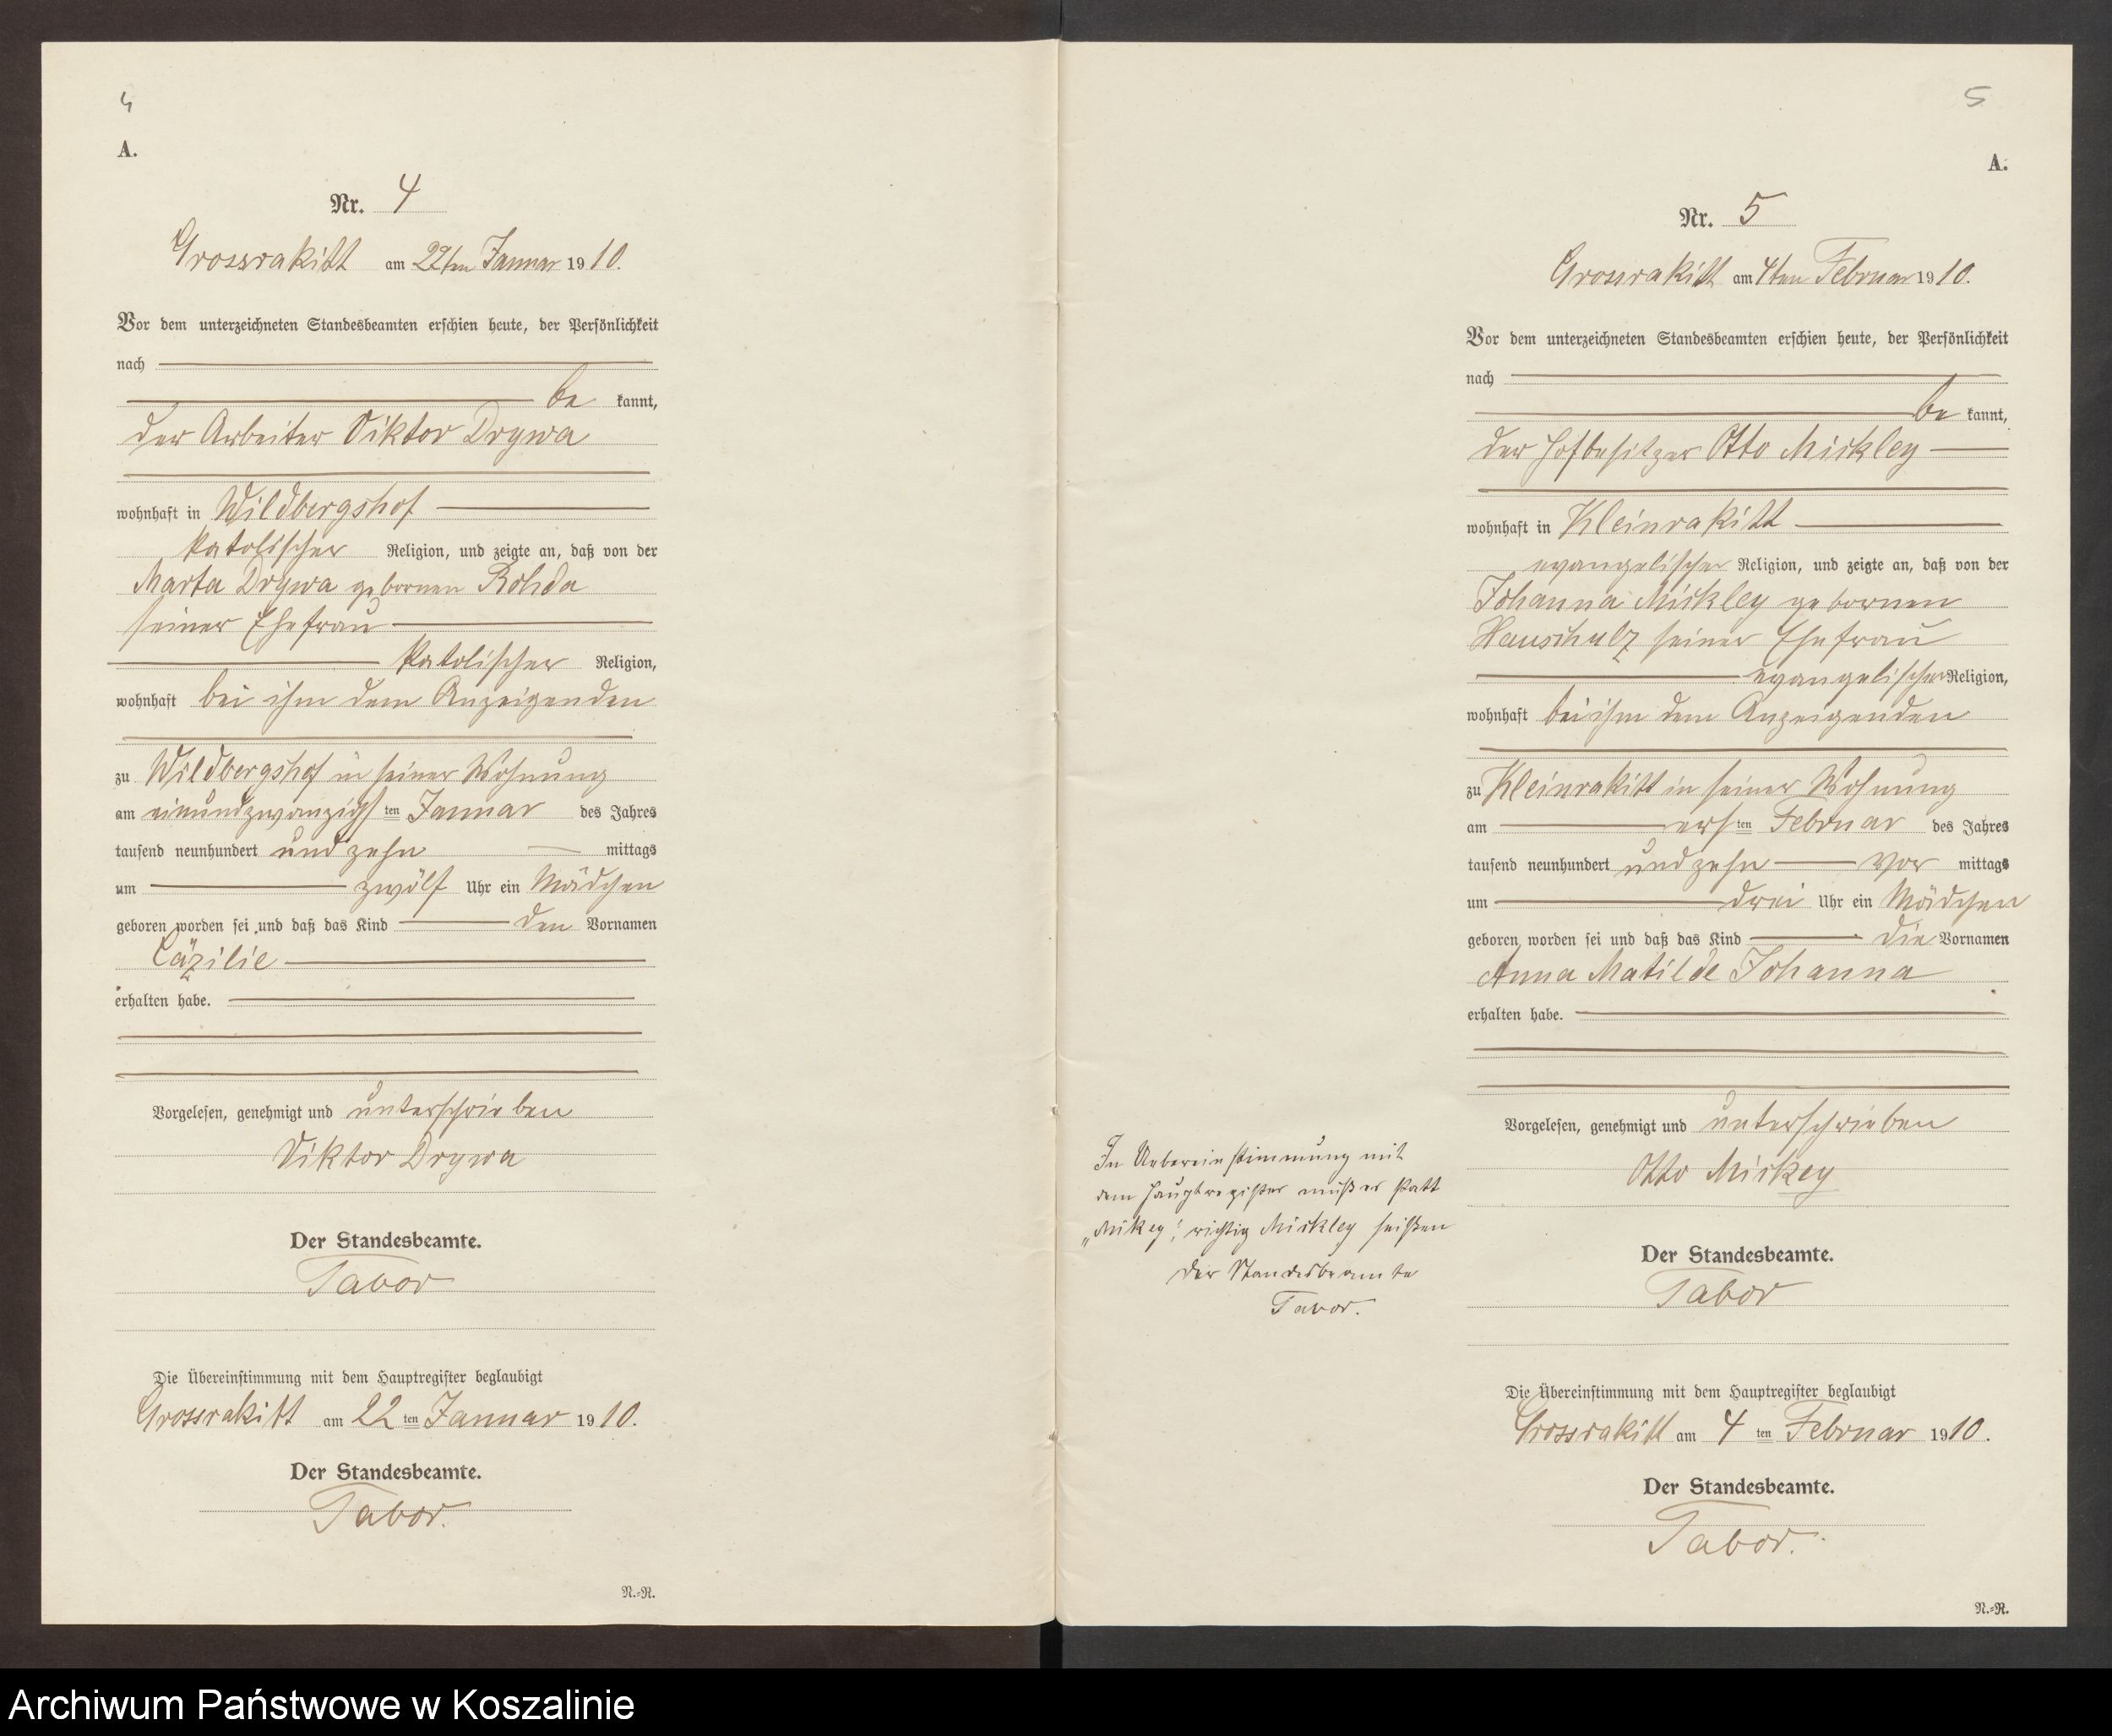 4
A.
Nr. 4
Grossrakitt am 22ten Januar 1910.
Vor dem unterzeichneten Standesbeamten erschien heute, der Persönlichkeit
nach
be kannt,
der Arbeiter Viktor Drywa
wohnhaft in Wildbergshof
katolischer Religion, und zeigte an, daß von der
Marta Drywa gebornen
seiner Ehefrau
katolischer Religion,
wohnhaft bei ihm dem Anzeigenden
zu Wildbergshof in seiner Wohnung
am einundzwanzigsten Januar des Jahres
tausend neunhundert und zehn mittags
um zwölf Uhr ein Mädchen
geboren worden sei und daß das Kind den Vornamen
Cäzilie
erhalten habe.
Vorgelesen, genehmigt und unterschrieben
Viktor Drywa
Der Standesbeamte.
Tabor
Die Übereinstimmung mit dem Hauptregister beglaubigt
Grossrakitt am 22 ten Januar 1910.
Der Standesbeamte.
Tabor.
N.=R.
5
A.
Nr. 5
Grossrakitt am 4ten Februar 1910.
Vor dem unterzeichneten Standesbeamten erschien heute, der Persönlichkeit
nach
be kannt,
der Hofbesitzer Otto Mickley
wohnhaft in Kleinrakitt
evangelischer Religion, und zeigte an, daß von der
Johanna Mickley gebornen
seiner Ehefrau
evangelischer Religion,
wohnhaft bei ihm dem Anzeigenden
zu Kleinrakitt in seiner Wohnung
am ersten Februar des Jahres
tausend neunhundert und zehn vor mittags
um drei Uhr ein Mädchen
geboren worden sei und daß das Kind die Vornamen
Anna Matilde Johanna
erhalten habe.
Vorgelesen, genehmigt und unterschrieben
Otto Mickey
In Uebereinstimmung mit
dem Hauptregister muß es statt
„Mikey“, richtig Mickley heißen
Der Standesbeamte
Tabor.
Der Standesbeamte.
Tabor
Die Übereinstimmung mit dem Hauptregister beglaubigt
Grossrakitt am 4 ten Februar 1910.
Der Standesbeamte.
Tabor.
N.=R.
Archiwum Państwowe w Koszalinie